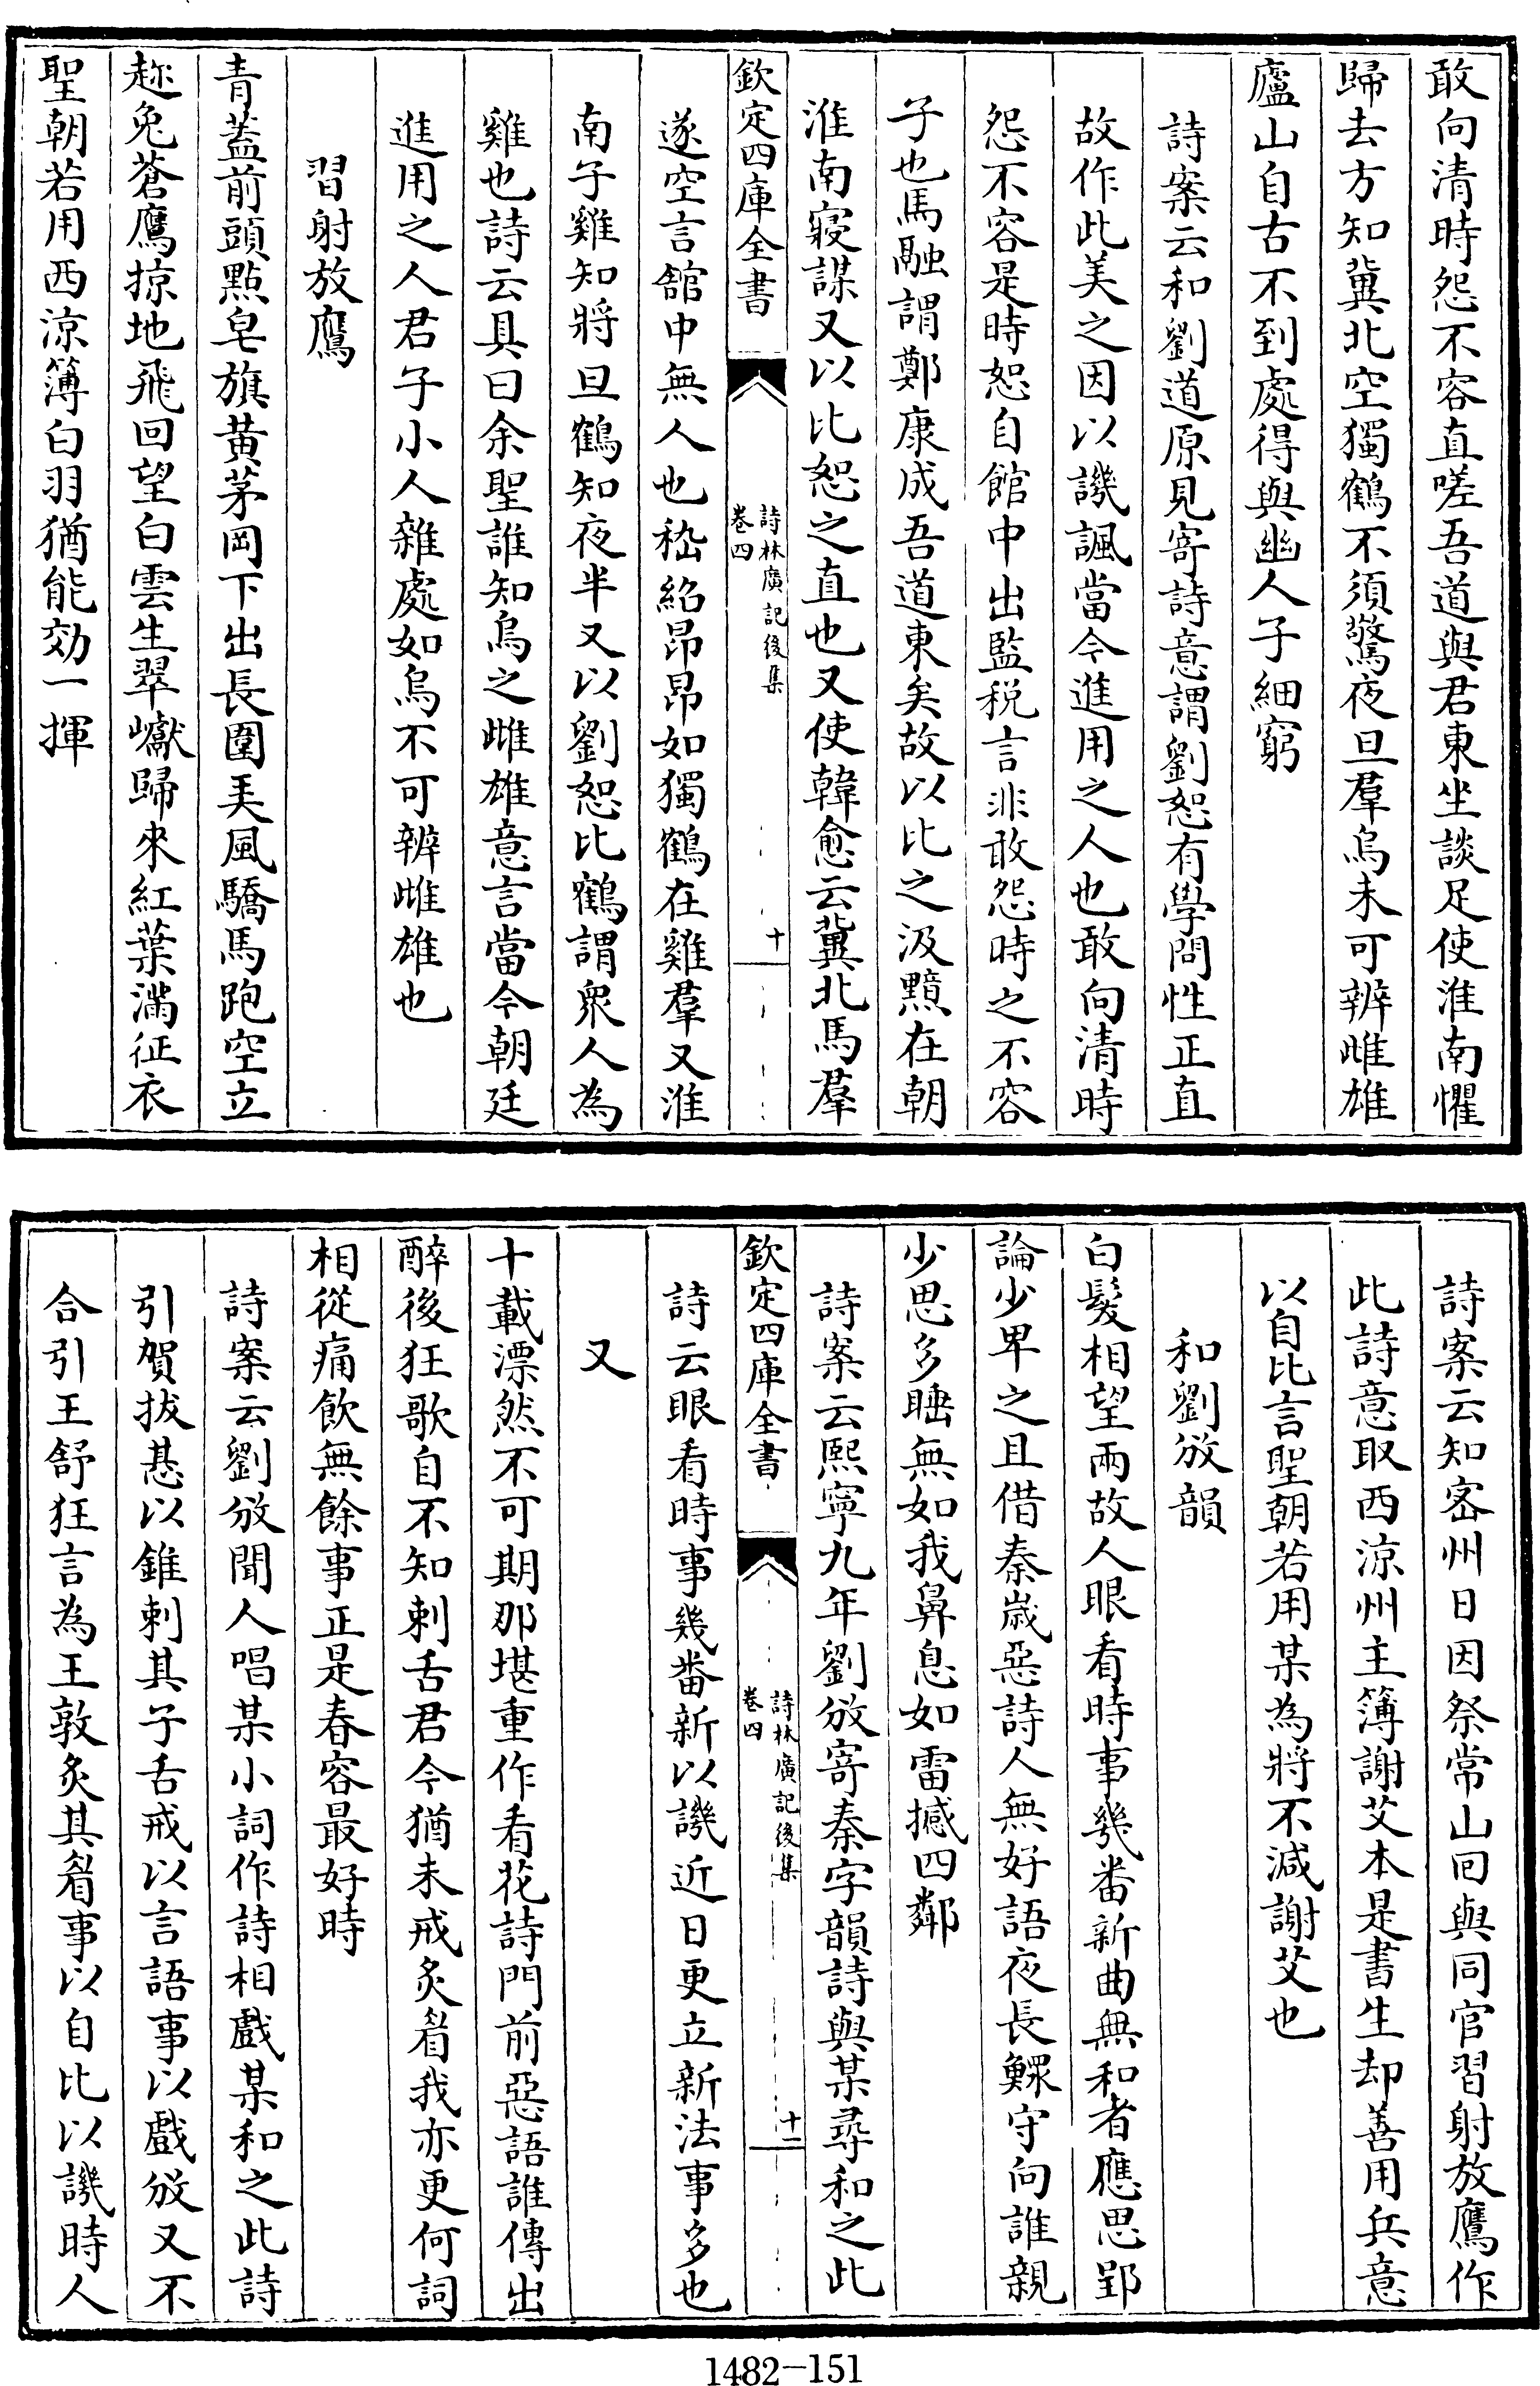 敢向清時怨不容直嗟吾道與君東坐談足使淮南懼
歸去方知冀北空獨鶴不須驚夜旦羣烏未可辨雌雄
廬山自古不到處得與幽人子細窮
詩案云和劉道原見寄詩意謂劉恕有學問性正直
故作此美之因以譏諷當今進用之人也敢向清時
怨不容是時恕自館中出監税言非敢怨時之不容
子也馬融謂鄭康成吾道東矣故以比之汲黯在朝
淮南寢謀又以比恕之直也又使韓愈云冀北馬羣
欽定四庫全書
詩林廣記後集
卷四
十
遂空言館中無人也嵇紹昂昂如獨鶴在雞羣又淮
南子雞知將旦鶴知夜半又以劉恕比鶴謂衆人為
雞也詩云具曰余聖誰知烏之雌雄意言當今朝廷
進用之人君子小人雜處如烏不可辨雌雄也
習射放鷹
青蓋前頭點皂旗黄茅岡下出長圍弄風驕馬跑空立
趂兔蒼鷹掠地飛回望白雲生翠巘歸來紅葉滿征衣
聖朝若用西涼簿白羽猶能効一揮
詩案云知宻州日因祭常山囘與同官習射放鷹作
此詩意取西涼州主簿謝艾本是書生却善用兵意
以自比言聖朝若用某為將不減謝艾也
和劉攽韻
白髮相望兩故人眼看時事幾番新曲無和者應思郢
論少卑之且借秦歲惡詩人無好語夜長鰥守向誰親
少思多睡無如我鼻息如雷撼四鄰
詩案云熙寧九年劉攽寄秦字韻詩與某尋和之此
欽定四庫全書
詩林廣記後集
卷四
十一
詩云眼看時事幾番新以譏近日更立新法事多也
又
十載漂然不可期那堪重作看花詩門前惡語誰傳出
醉後狂歌自不知刺舌君今猶未戒炙眉我亦更何詞
相從痛飲無餘事正是春容最好時
詩案云劉攽聞人唱某小詞作詩相戲某和之此詩
引賀拔惎以錐刺其子舌戒以言語事以戲攽又不
合引王舒狂言為王敦炙其眉事以自比以譏時人
1482-151